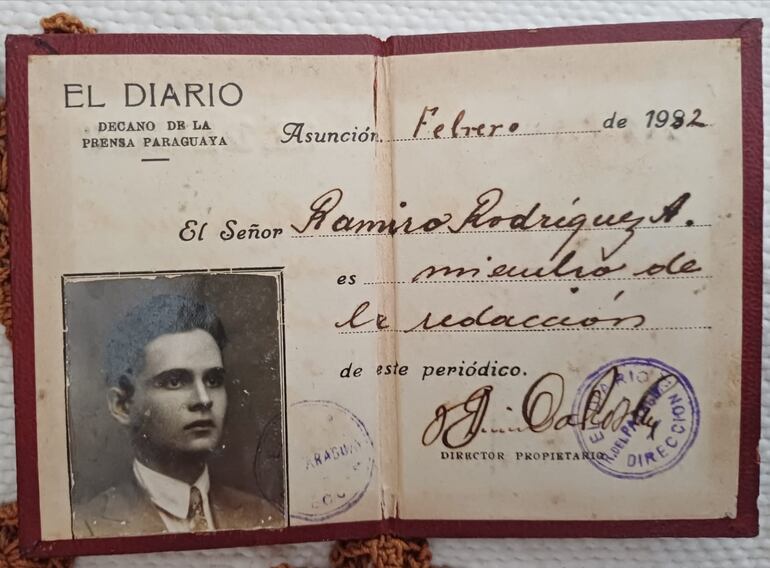 EL DIARIO
DECANO DE LA
PRENSA PARAGUAYA
Asunción, Febrero de 1932
El Señor Ramiro Rodríguez A.
es miembro de
la redacción
de este periódico.
DIRECTOR PROPIETARIO
EL DIARIO
R. DEL PARAGUAY
DIRECCION
PARAGUAY